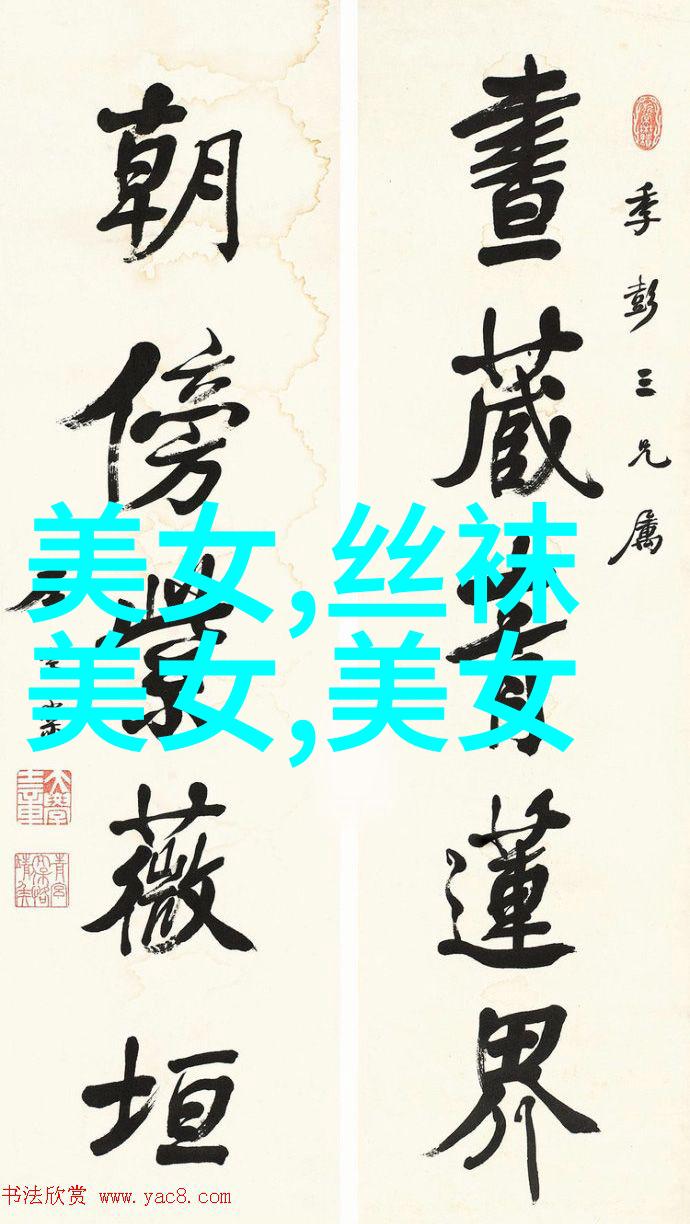 季彭三兄属
晝藏青蓮界
朝傍薇垣
美女,丝袜
美女,美女
书法欣赏 www.yac8.com